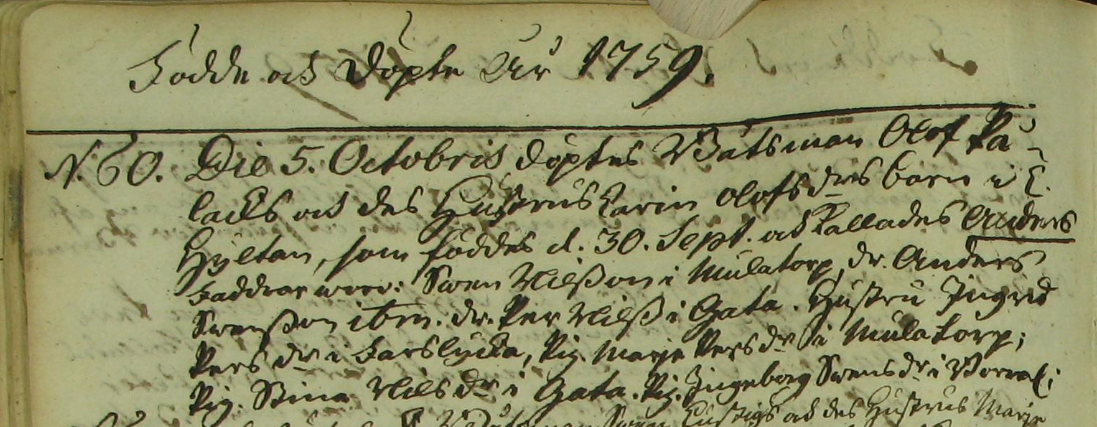 Födde och Döpte Åhr 1759.
N. 60. Die 5. Octobris döptes Båtsman Olof Pa-
lacks och des Hustrus Karin Olofs drs barn i L.
Hyltan, som föddes d. 30. Sept. och Kallades Anders
Faddrar woro: Swen Nilsson i Mulatorp, dr. Anders
Swensson ibm. dr. Per Nilss i Gata. Hustru Ingrid
Pers dr i Farslycka, Pig. Marje Pers dr i Mulatorp;
Pig. Stina Nils dr i Gata. Pig. Ingeborg Swens dr i
Swen och des Hustrus Marje